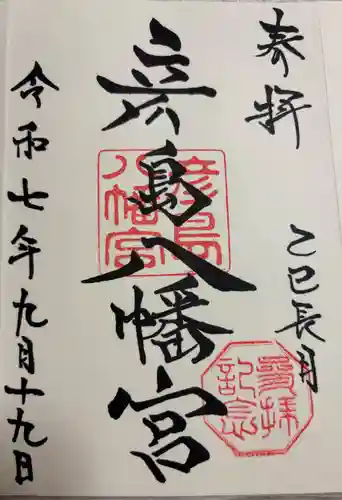 奉拝
乙巳長月
彦島八幡宮
令和七年九月十九日
彦島
八幡宮
参拝
記念